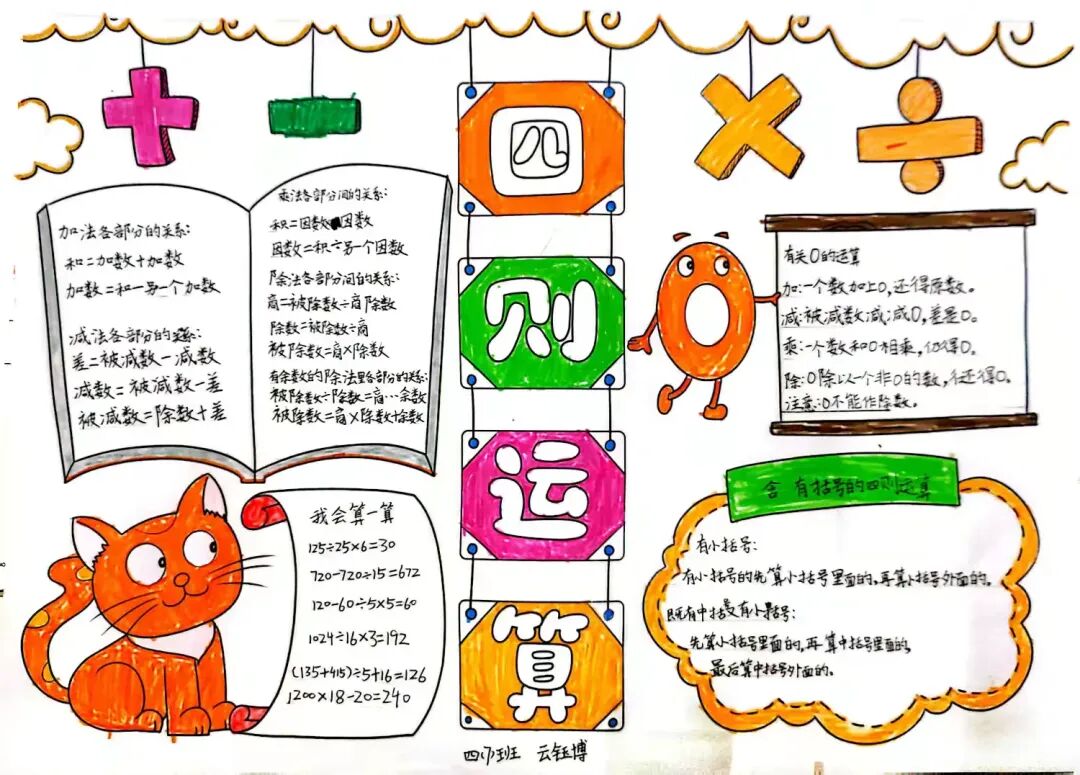 四则运算
加法各部分的关系:
和=加数+加数
加数=和-另一个加数
减法各部分的关系:
差=被减数-减数
减数=被减数-差
被减数=除数+差
乘法各部分间的关系:
积=因数×因数
因数=积÷另一个因数
除法各部分间的关系:
商=被除数÷商除数
除数=被除数÷商
被除数=商×除数
有余数的除法里各部分的关系:
被除数÷除数=商…余数
被除数=商×除数+余数
有关0的运算
加:一个数加上0,还得原数。
减:被减数减,减0,差是0。
乘:一个数和0相乘,仍得0。
除:0除以一个非0的数,还得0。
注意:0不能作除数。
我会算一算
125÷25×6=30
720-720÷15=672
120-60÷5×5=60
1024÷16×3=192
(135+415)÷5+16=126
1200×18-20=240
含有括号的四则运算
有小括号:
有小括号的先算小括号里面的,再算小括号外面的。
既有中括号又有小括号:
先算小括号里面的,再算中括号里面的,
最后算中括号外面的。
四(7)班 云钰博